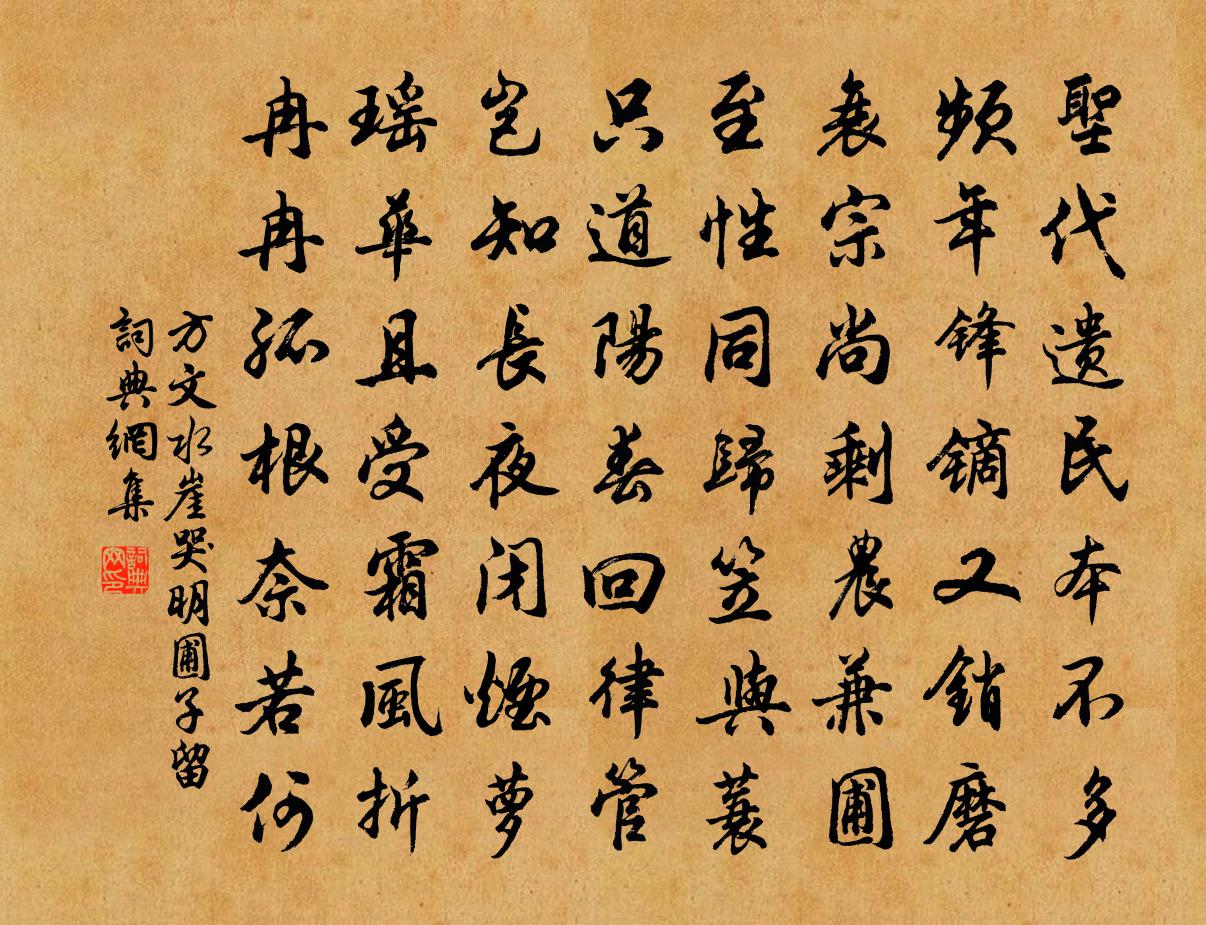 聖代遗民本不多
頻年锋镝又銷磨
衰宗尚剩農兼圃
至性同歸笠與蓑
只道陽春回律管
岂知長夜闭煙萝
瑶華且受霜風折
冉冉孤根奈若何
方文水崖哭明圃子留
詞典網集
詞典网印